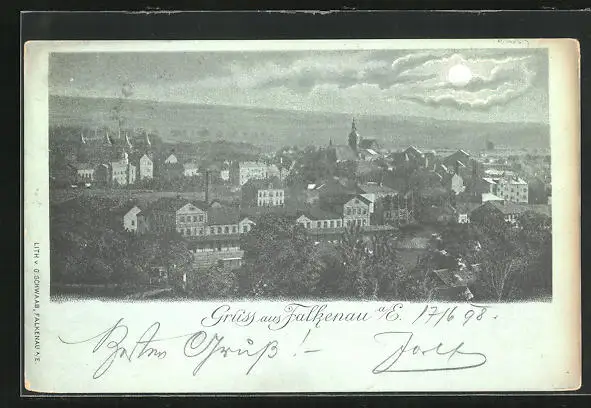 LITH v. G. SCHWAAB, FALKENAU A/E.
Gruss aus Falkenau a/E. 17/6 98.
Besten Gruß! –